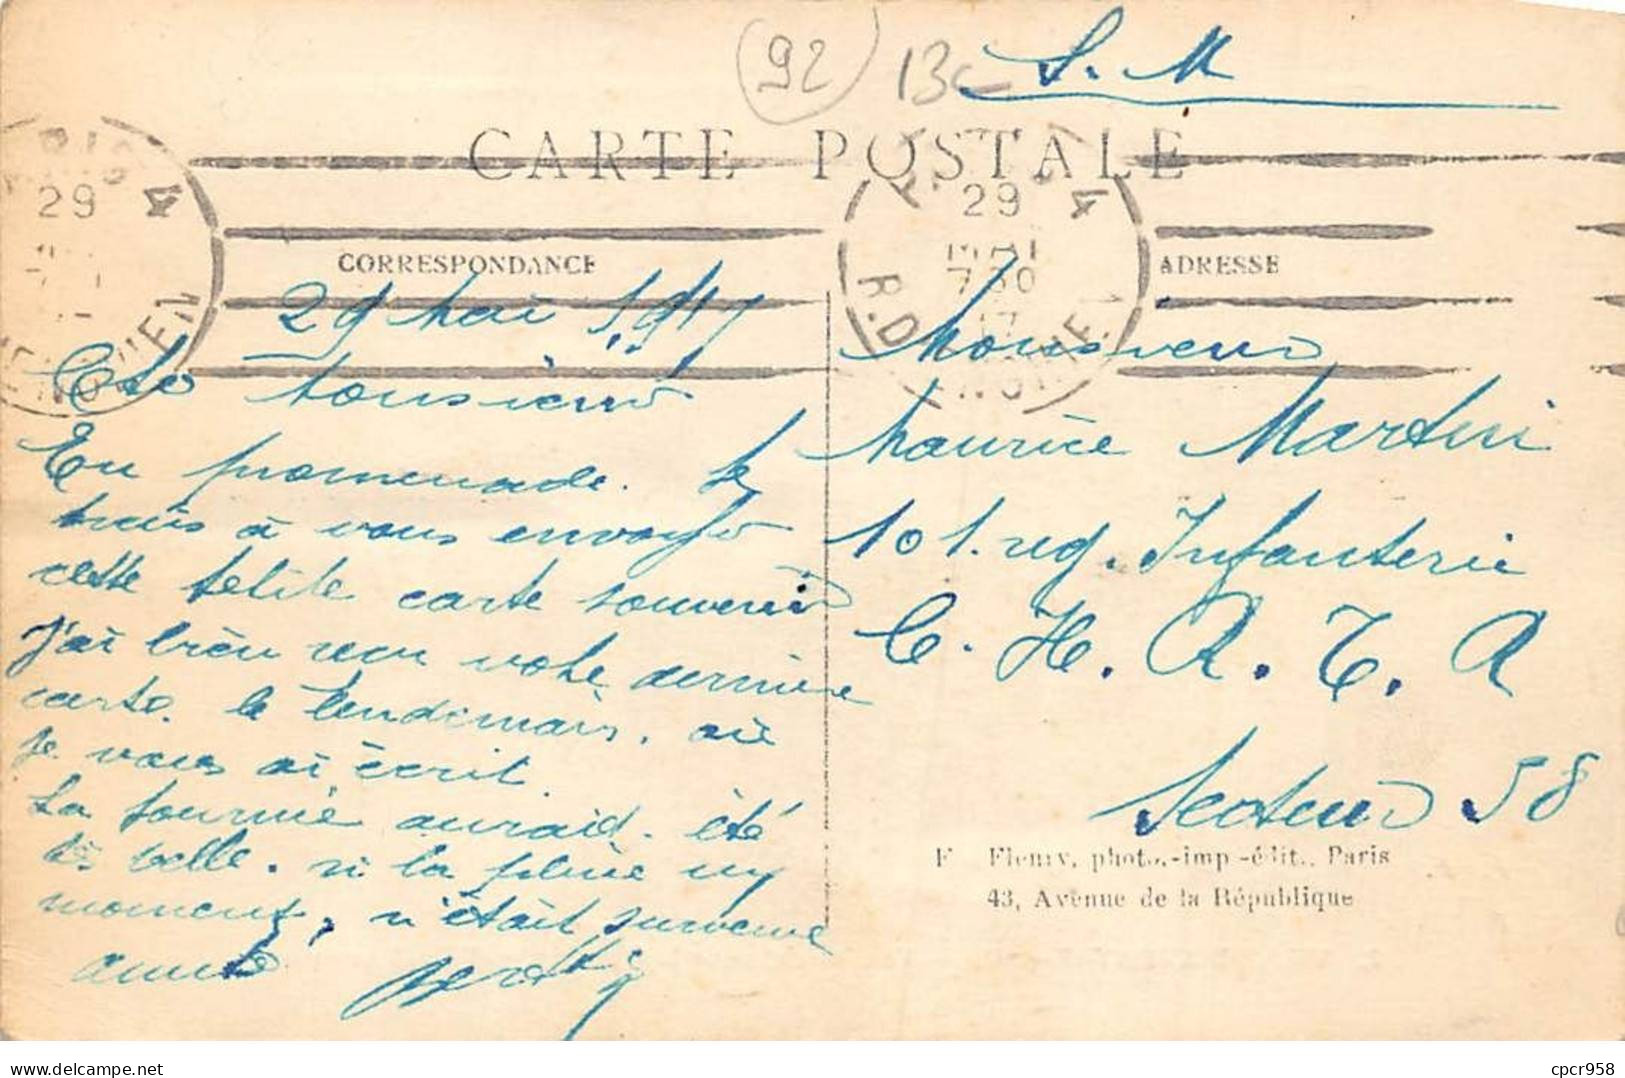 92 13c S. M
CARTE POSTALE
PARIS 4
29
R. D
29
MAI
730
17
CORRESPONDANCE
ADRESSE
29 Mai 1917
Monsieur
Maurice Martin
101. reg. Infanterie
C. H. R. T. A
Secteur 58
En promenade. Je
tiens à vous envoyer
cette petite carte souvenir
J'ai bien reçu votre dernière
carte. le lendemain. où
je vous ai écrit
La journée auraid. été
très belle. si la pluie un
moment, n'était survenue
amitié Berthe
F Fleury, photo.-imp.-édit., Paris
43, Avenue de la République
delcampe.net
cpcr958